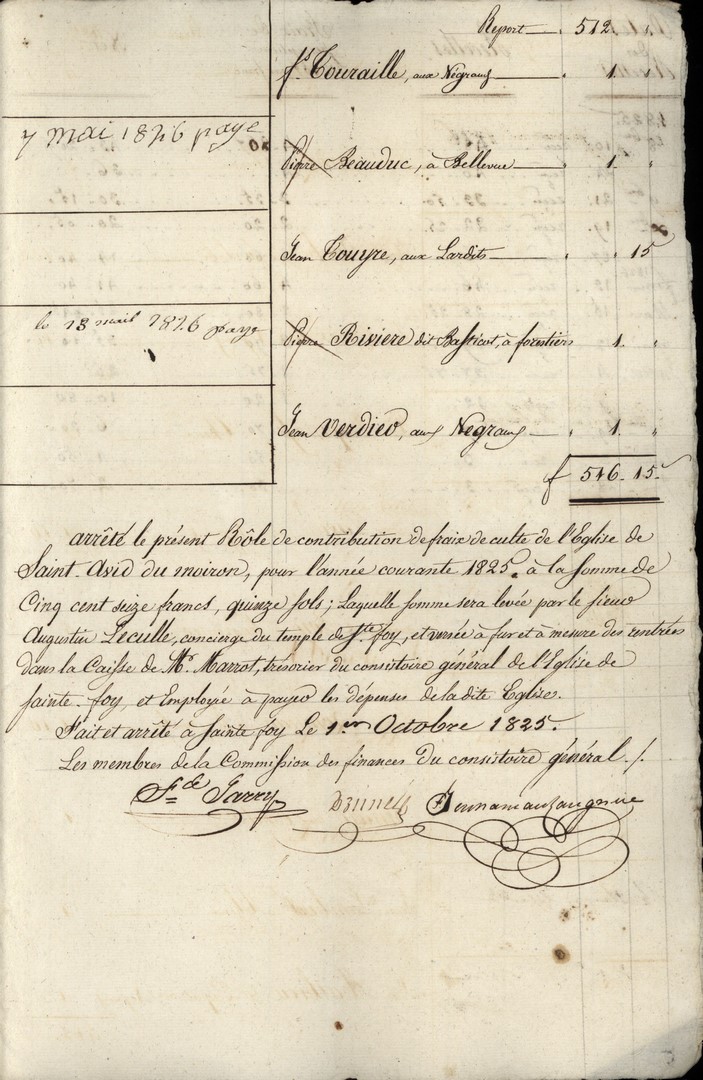 Report — 512. "
fs. Touraille, aux Négrauds — " 1. "
7 mai 1826 payé
Pierre Beauduc, à Bellevue — " 1. "
Jean Touyre, aux Lardits — " " 15
le 18 mail 1826 payé
Pierre Riviere dit Basticot, à forestiers 1. "
Jean Verdieu, aux Negraux — " 1. "
f 516. 15.
arrêté le présent Rôle de contribution de fraix de culte de l'Eglise de
Saint-Avid du moiron, pour l'année courante 1825. à la somme de
Cinq cent seize francs, quinze sols; Laquelle somme sera levée par le sieur
Augustin Leculle, concierge du temple de Ste. foy, et versée à fur et à mesure des rentrées
dans la Caisse de Mr. Marrot, trésorier du consistoire général de l'Eglise de
Sainte-foy, et Employée à payer les dépenses de la dite Eglise.
Fait et arrêté à Sainte foy Le 1er Octobre 1825.
Les membres de la Commission des finances du consistoire général ./.